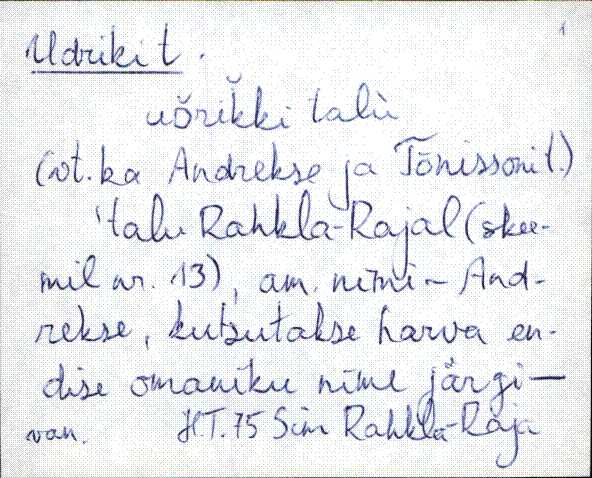 1
Udriki t.
uδrikki talù
(vt. ka Andrekse ja Tõnissoni t.)
'talu Rahkla-Rajal (skee-
mil nr. 13), am. nimi - And-
rekse, kutsutakse harva en-
dise omaniku nime järgi —
van. H.T. 75 Sim Rahkla-Raja